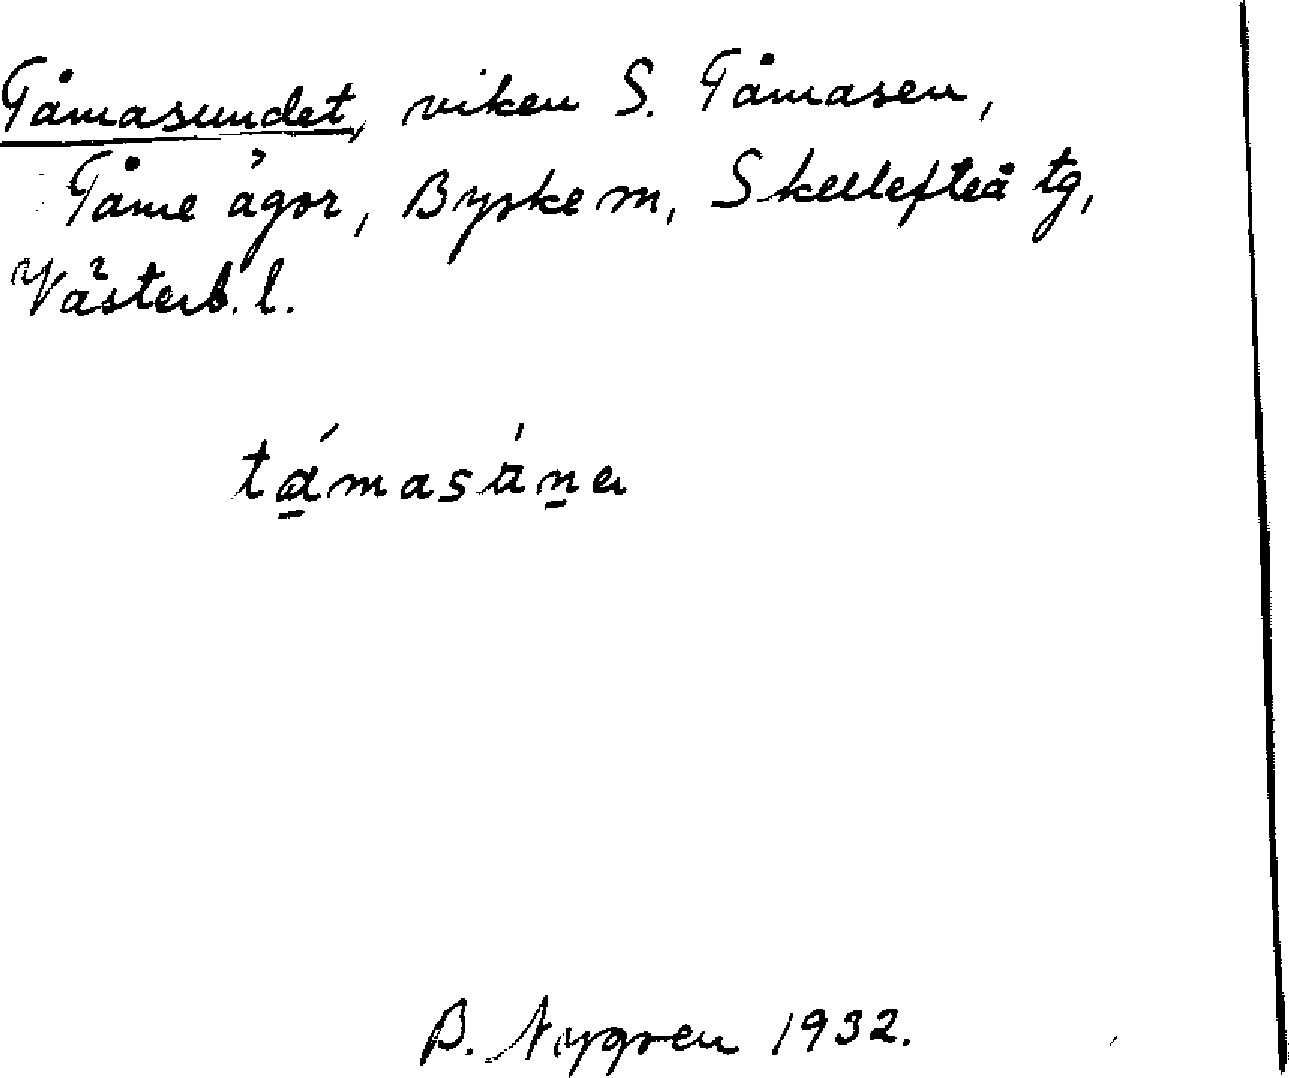 Tåmasundet, viken S. Tåmasen,
Tåme ägor, Byske m, Skellefteå tg,
Västerb. l.
B. Nygren 1932.